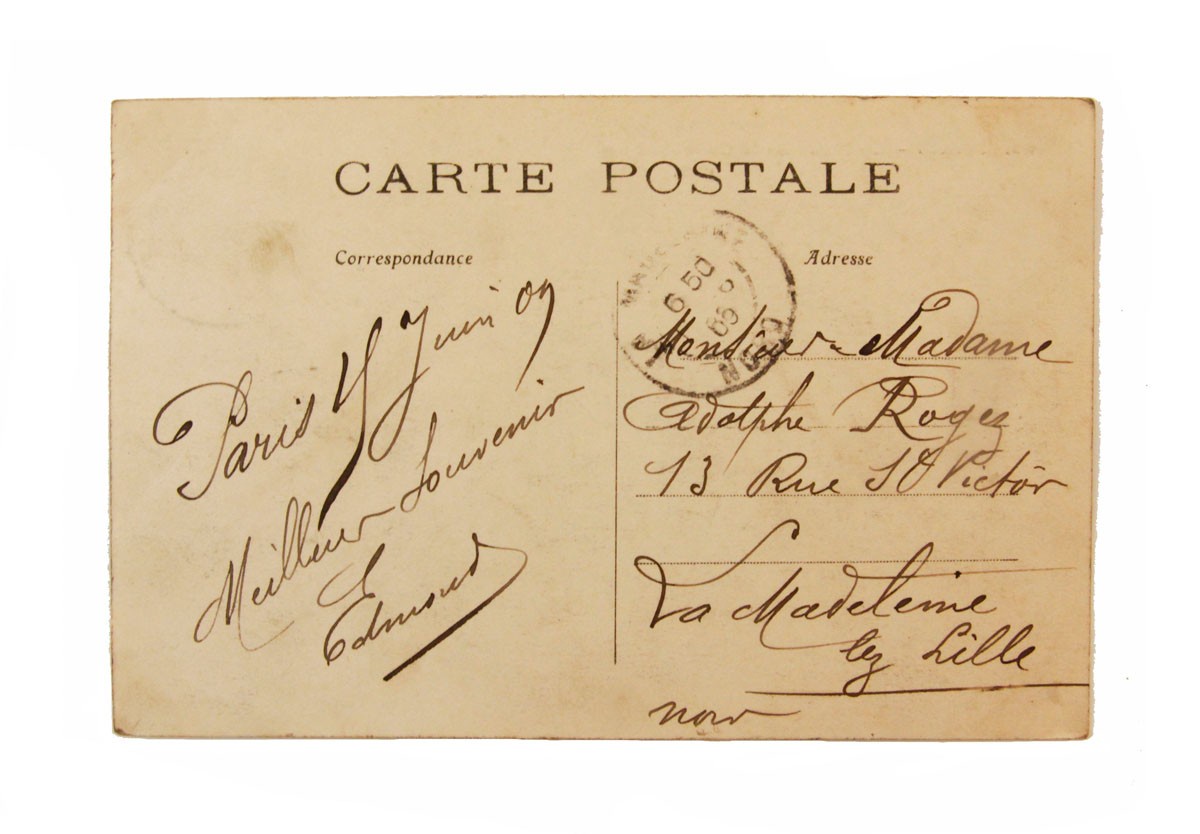 CARTE POSTALE
Correspondance
Paris 15 Juin 09
Meilleur Souvenir
Edmond
Adresse
6 50
09
NORD
Monsieur Madame
Adolphe Rogez
13 Rue St Victor
La Madeleine
lez Lille
Nord